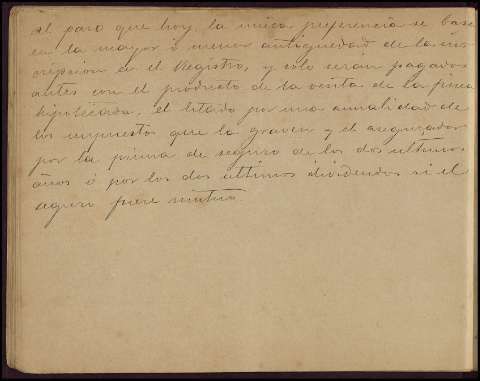 al paso que hoy, la única preferencia se base
en la mayor o menor antigüedad de la ins
cripcion en el Registro, y solo seran pagados
antes con el producto de la venta de la finca
hipotecada, el Estado por una annalidad de
los impuestos que la graven y el asegurador
por la prima de seguro de los dos ultimos
años ó por los dos ultimos dividendos si el
seguro fuere mutuo